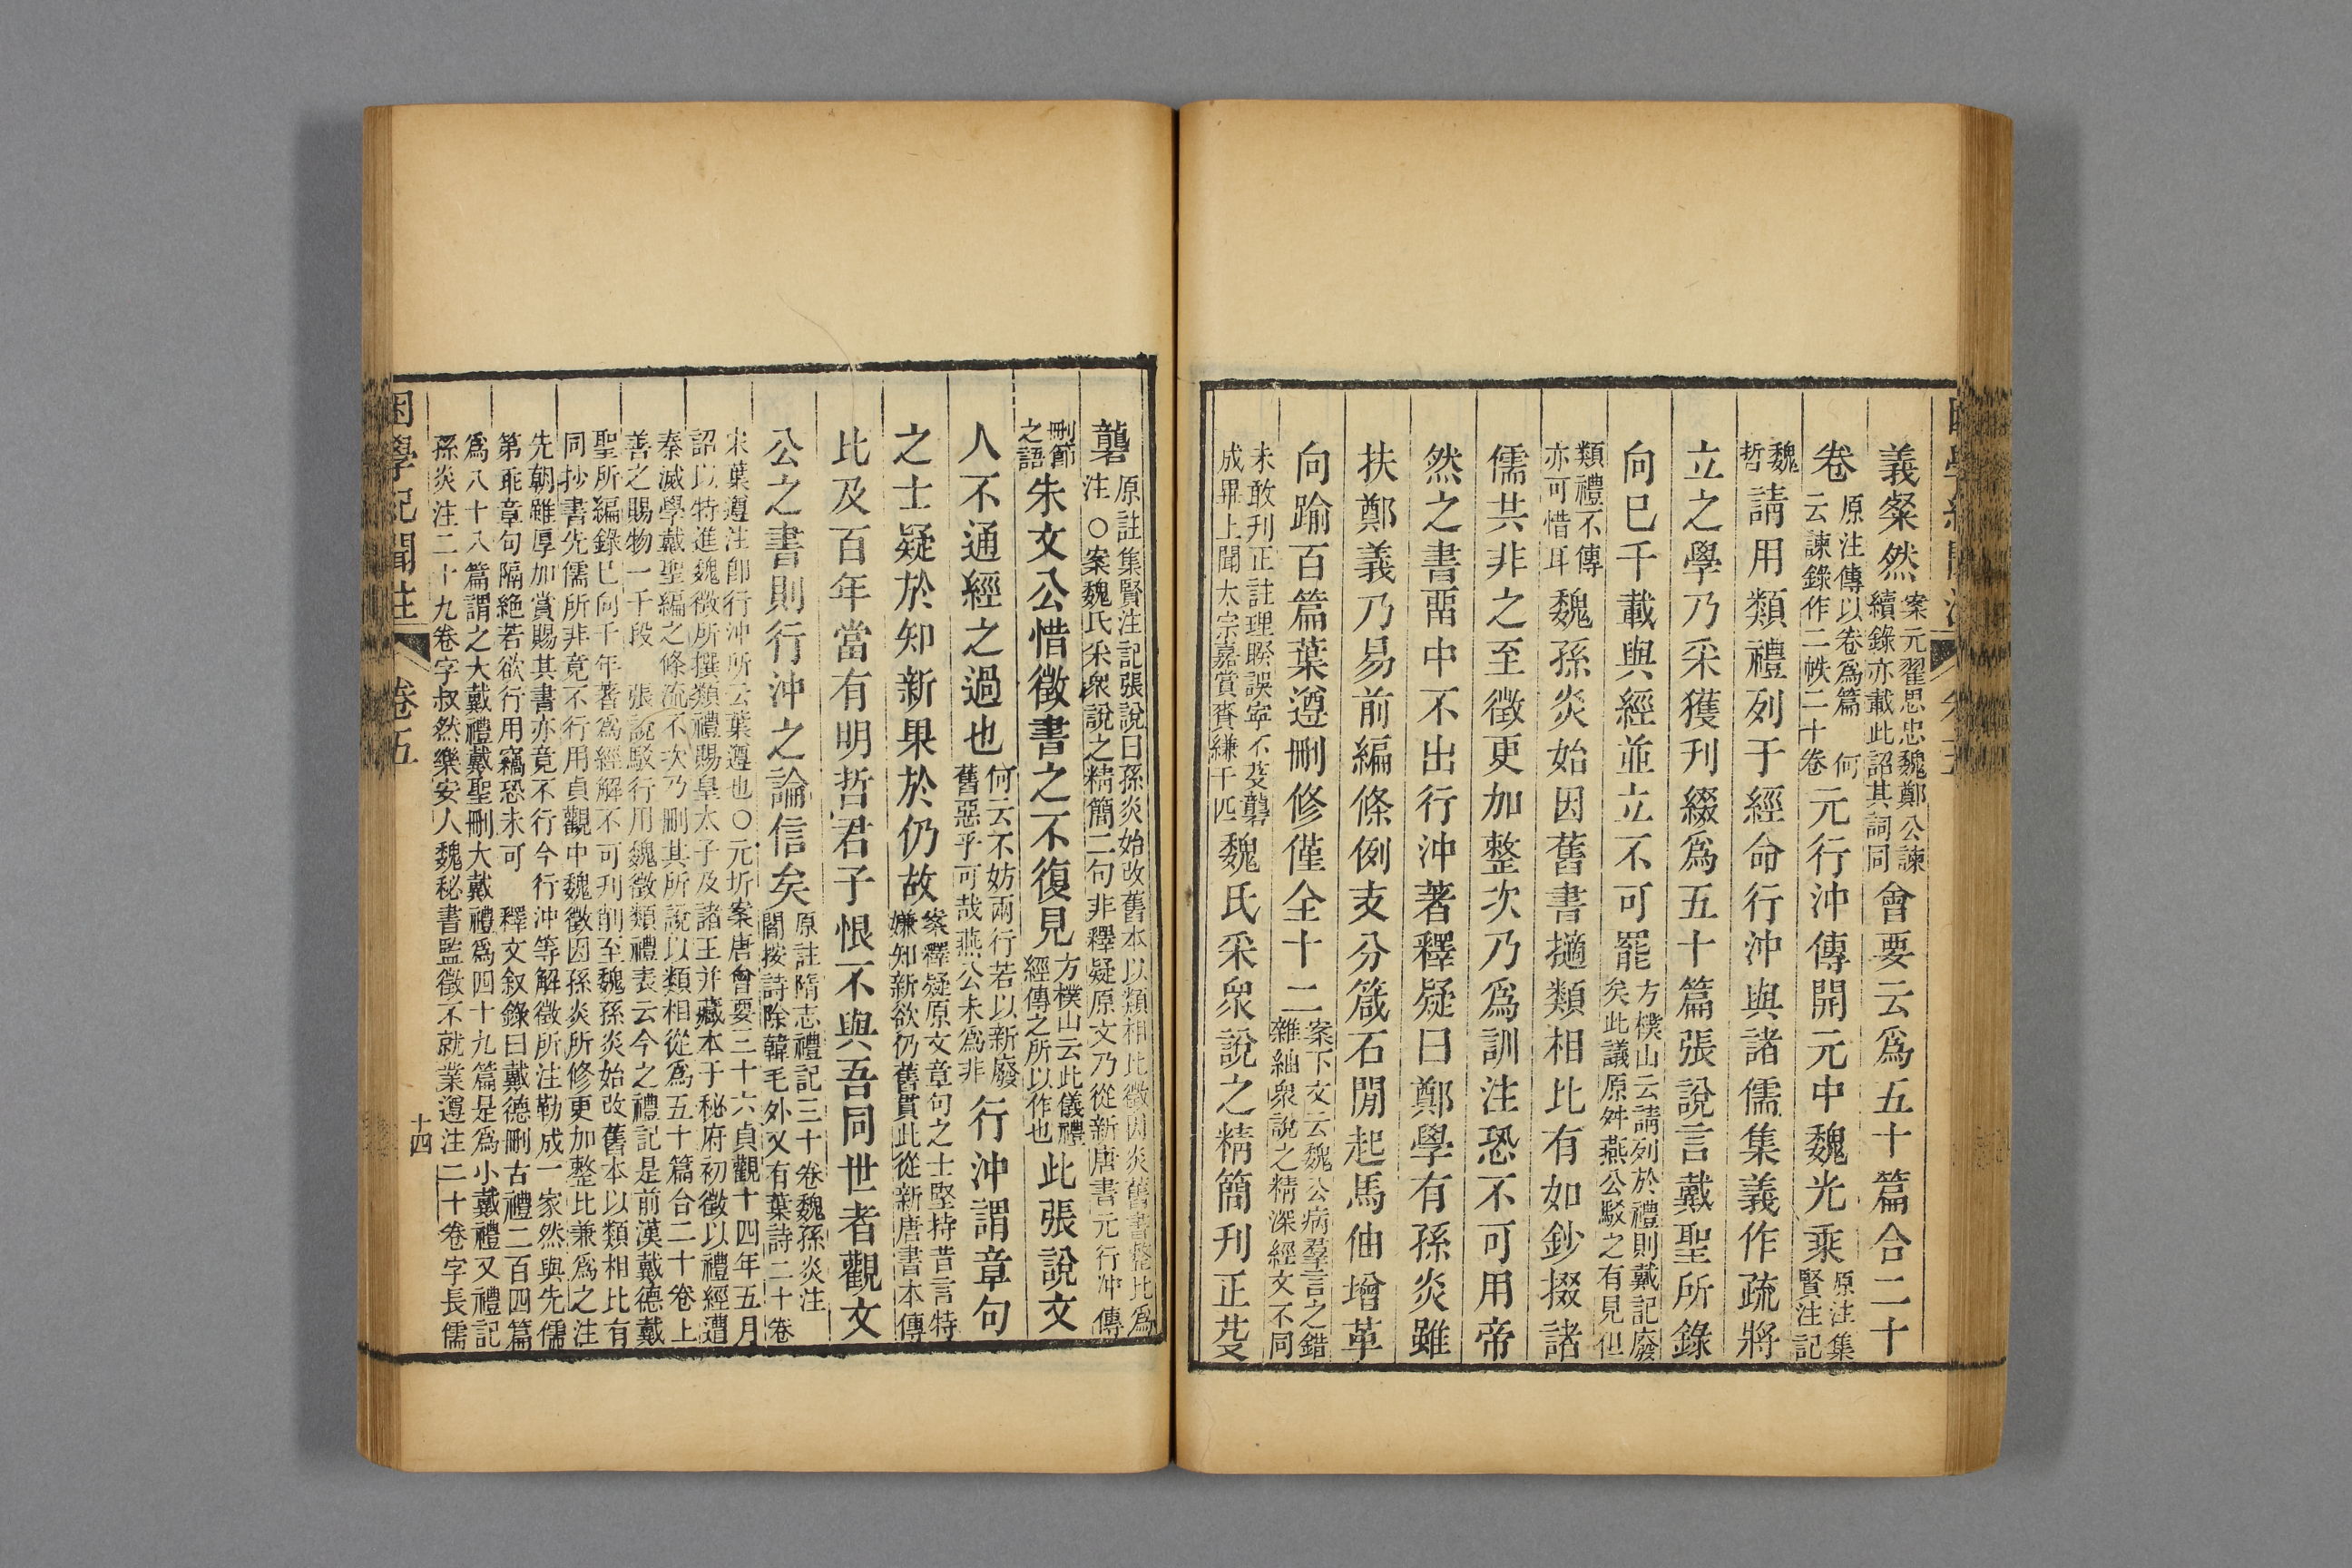 義粲然案元翟思忠魏鄭公諫續錄亦載此詔其詞同會要云爲五十篇合二十
卷原注傳以卷爲篇何云諫錄作二帙二十卷元行沖傳開元中魏光乘原注集賢注記
魏哲請用類禮列于經命行沖與諸儒集義作疏將
立之學乃采獲刊綴爲五十篇張說言戴聖所錄
向巳千載與經並立不可罷方樸山云請列於禮則戴記廢矣此議原舛燕公駁之有見但
類禮不傳亦可惜耳魏孫炎始因舊書擿類相比有如鈔掇諸
儒共非之至徵更加整次乃爲訓注恐不可用帝
然之書畱中不出行沖著釋疑曰鄭學有孫炎雖
扶鄭義乃易前編條例支分箴石閒起馬伷增革
向踰百篇葉遵刪修僅全十二案下文云魏公病羣言之錯雜紬衆說之精深經文不同
未敢刊正註理睽誤寍不芟礱成畢上聞太宗嘉賞賚縑千匹魏氏采衆說之精簡刊正芟
礱原註集賢注記張說曰孫炎始改舊本以類相比徵因炎舊書整比爲注○案魏氏采衆說之精簡二句非釋疑原文乃從新唐書元行沖傳
刪節之語朱文公惜徵書之不復見方樸山云此儀禮經傳之所以作也此張說文
人不通經之過也何云不妨兩行若以新廢舊惡乎可哉燕公未爲非行沖謂章句
之士疑於知新果於仍故案釋疑原文章句之士堅持昔言特嫌知新欲仍舊貫此從新唐書本傳
比及百年當有明哲君子恨不與吾同世者觀文
公之書則行沖之論信矣原註隋志禮記三十卷魏孫炎注閻按詩除韓毛外又有葉詩二十卷
宋葉遵注卽行沖所云葉遵也○元圻案唐會要三十六貞觀十四年五月
詔以特進魏徵所撰類禮賜皇太子及諸王并藏本于秘府初徵以禮經遭
秦滅學戴聖編之條流不次乃刪其所說以類相從爲五十篇合二十卷上
善之賜物一千段 張說駁行用魏徵類禮表云今之禮記是前漢戴德戴
聖所編錄巳向千年著爲經解不可刋削至魏孫炎始改舊本以類相比有
同抄書先儒所非竟不行用貞觀中魏徵因孫炎所修更加整比兼爲之注
先朝雖厚加賞賜其書亦竟不行今行沖等解徵所注勒成一家然與先儒
第乖章句隔絶若欲行用竊恐未可 釋文叙錄曰戴德刪古禮二百四篇
爲八十八篇謂之大戴禮戴聖刪大戴禮爲四十九篇是爲小戴禮又禮記
孫炎注二十九卷字叔然樂安人魏秘書監徵不就業遵注二十卷字長儒
困學紀聞注 卷五 十四